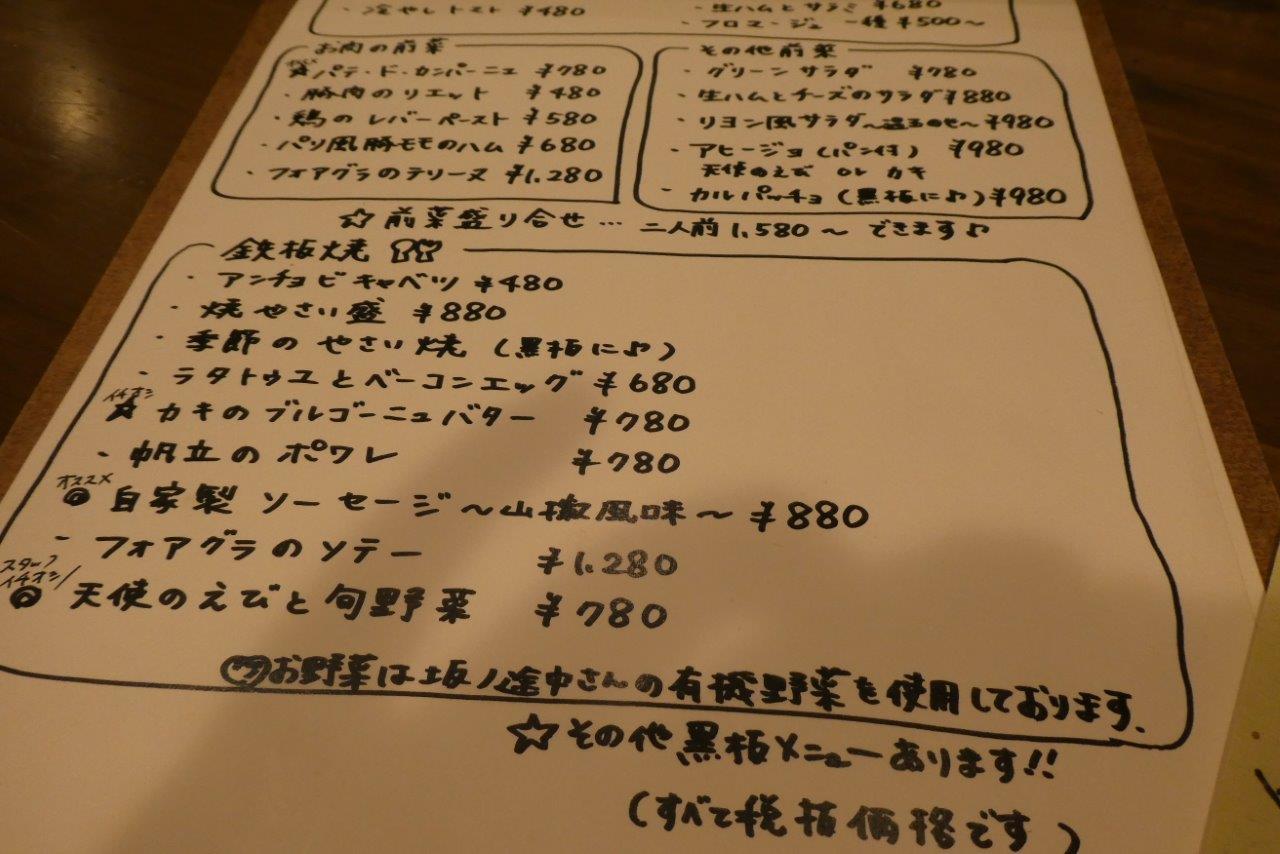 ・冷やしトマト ¥480
・生ハムとサラミ ¥680
・フロマージュ 一種 ¥500〜
お肉の前菜
☆パテ・ド・カンパーニュ ¥780
・豚肉のリエット ¥480
・鶏のレバーペースト ¥580
・パリ風豚モモのハム ¥680
・フォアグラのテリーヌ ¥1,280
その他前菜
・グリーンサラダ ¥780
・生ハムとチーズのサラダ ¥880
・リヨン風サラダ〜温玉のせ〜 ¥980
・アヒージョ(パン付) ¥980
天使のえび or カキ
・カルパッチョ(黒板に♪) ¥980
☆前菜盛り合せ… 二人前1,580〜 できます♪
鉄板焼
・アンチョビキャベツ ¥480
・焼やさい盛 ¥880
・季節のやさい焼 (黒板に♪)
・ラタトゥユとベーコンエッグ ¥680
イチオシ
☆カキのブルゴーニュバター ¥780
・帆立のポワレ ¥780
オススメ
◎自家製ソーセージ〜山椒風味〜 ¥880
・フォアグラのソテー ¥1,280
スタッフ
イチオシ/
◎天使のえびと旬野菜 ¥780
お野菜は坂ノ途中さんの有機野菜を使用しております、
☆その他黒板メニューあります!!
(すべて税抜価格です)